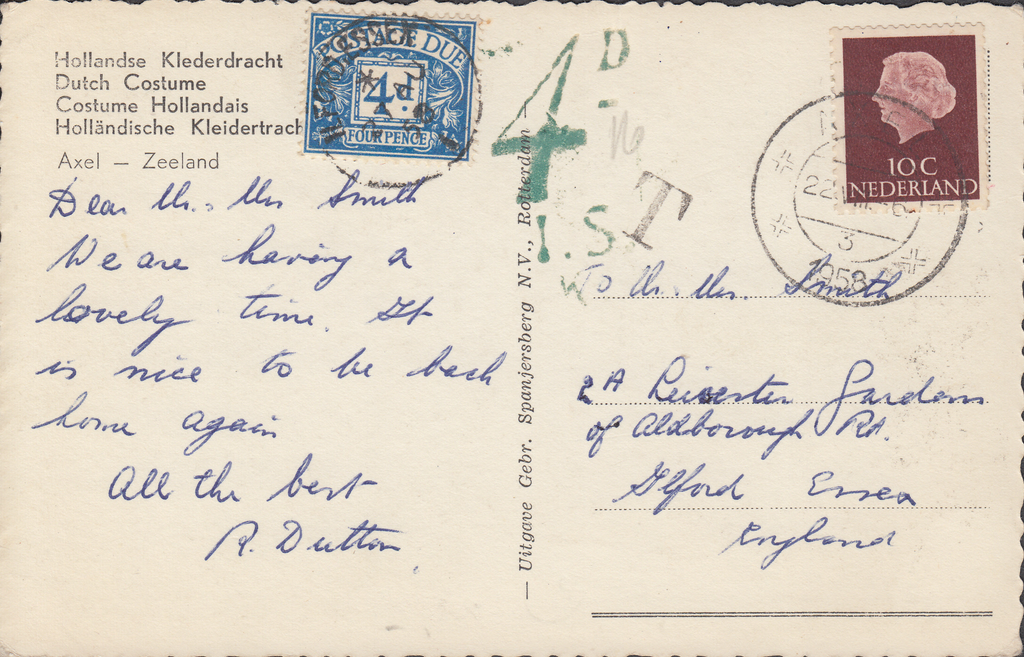 Hollandse Klederdracht
Dutch Costume
Costume Hollandais
Holländische Kleidertrach
Axel — Zeeland
POSTAGE DUE
4d.
FOUR PENCE
4D
I.S.
T
10 C
NEDERLAND
3
1958
Dear Mr. Mrs Smith
We are having a
lovely time. It
is nice to be back
home again
All the best
R. Dutton
— Uitgave Gebr. Spanjersberg N.V., Rotterdam —
To Mr. Mrs. Smith
2A Leicester Gardens
of Aldborough Rd.
Ilford Essex
England